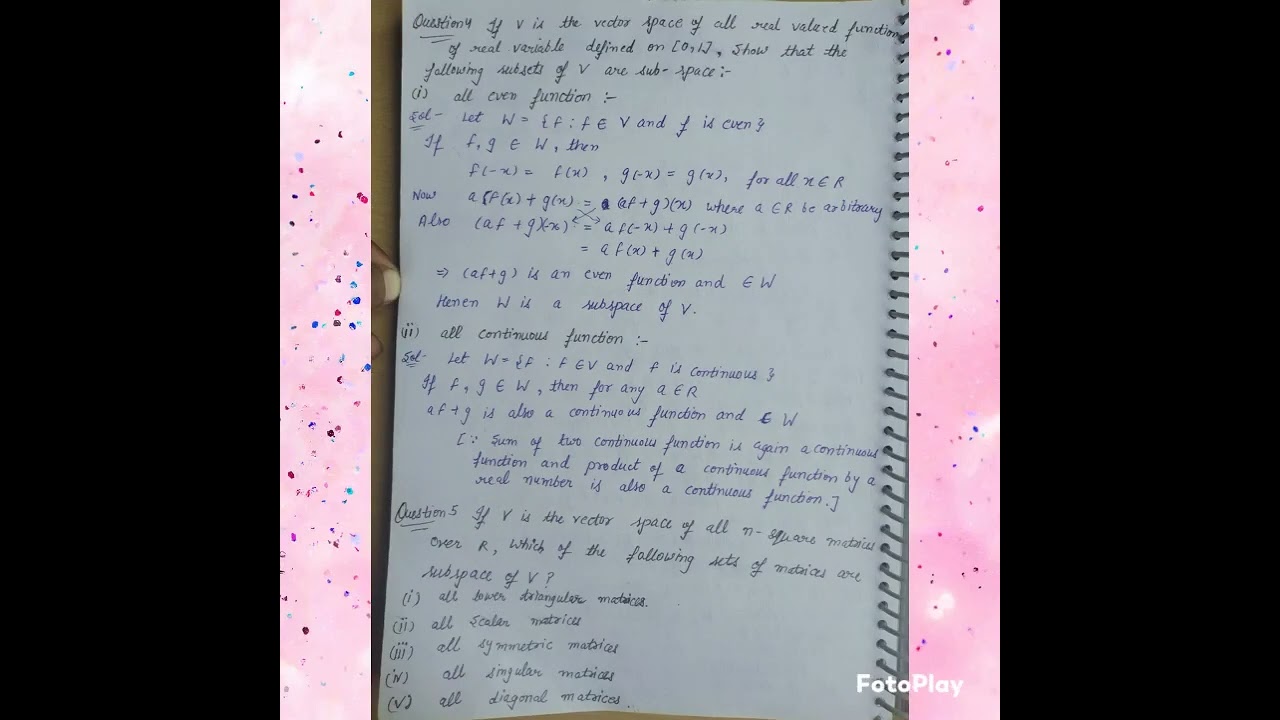 Question4 If V is the vector space of all real valued function
of real variable defined on [0,1], Show that the
following subsets of V are sub-space:-
(i) all even function :-
Sol- Let W = {f : f ∈ V and f is even}
If f, g ∈ W, then
f(-x) = f(x), g(-x) = g(x), for all x ∈ R
Now a f(x) + g(x) = (af+g)(x) where a ∈ R be arbitrary
Also (af+g)(-x) = a f(-x) + g(-x)
= a f(x) + g(x)
⇒ (af+g) is an even function and ∈ W
Henen W is a subspace of V.
(ii) all continuous function :-
Sol- Let W = {f : f ∈ V and f is continuous}
If f, g ∈ W, then for any a ∈ R
af+g is also a continuous function and ∈ W
[∵ Sum of two continuous function is again a continuous
function and product of a continuous function by a
real number is also a continuous function.]
Question5 If V is the vector space of all n-square matrices
over R, Which of the following sets of matrices are
subspace of V?
(i) all lower triangular matrices.
(ii) all Scalar matrices
(iii) all symmetric matrices
(iv) all singular matrices
(v) all diagonal matrices.
FotoPlay